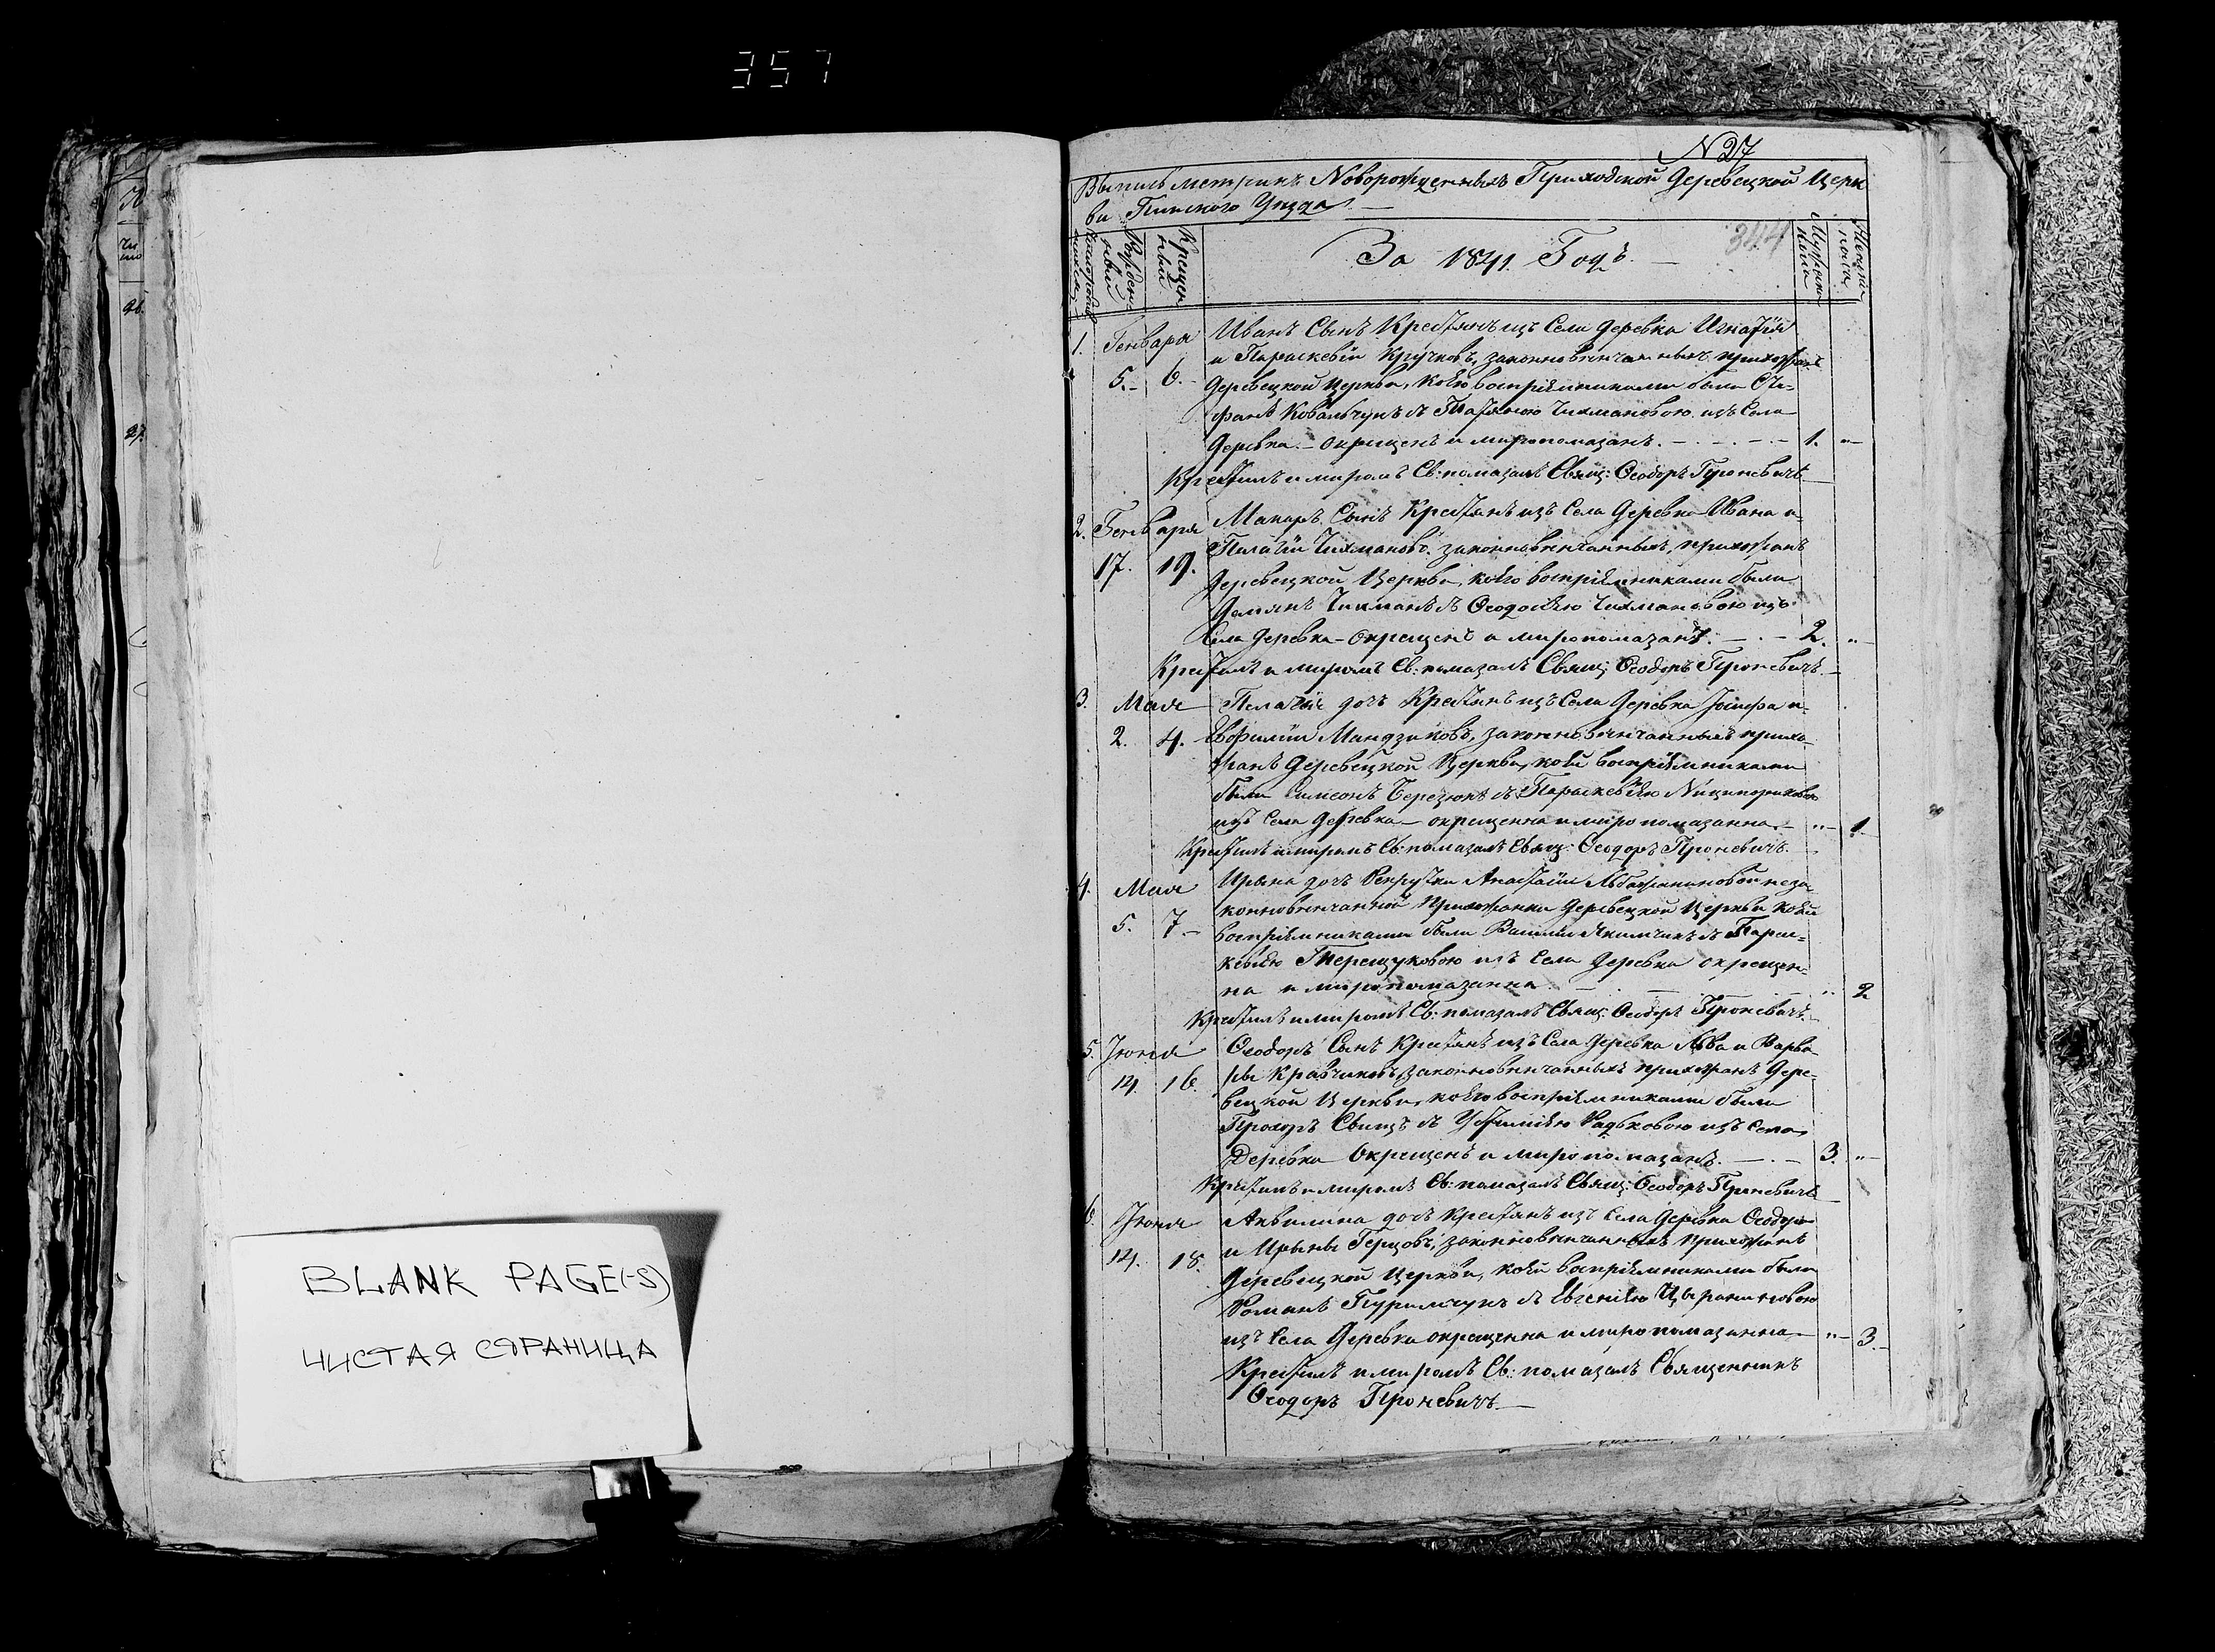 357
N 27
Выпись метрикъ Новорожденныхъ Приходской Деревецкой Церк
ви Пинского Уезда.
344
За 1841. Годъ.
Рожденный
Крещенный
Мужска пола
Женска пола
1. Генваря Иванъ Сынъ Крестянъ изъ Села Деревка Игнатія
и Параскевіи Кручковъ, законновѣнчанныхъ прихожанъ
5. 6. Деревецкой Церкви, коего воспріемниками были Сте-
фанъ Ковальчукъ съ Татяною Чихмановою изъ Села
Деревка - окрещенъ и миропомазанъ. 1. "
Крестилъ и миромъ Св: помазалъ Свящ: Ѳеодоръ Проневичъ
2. Генваря Макаръ Сынъ Крестянъ изъ Села Деревка Ивана и
Пилагіи Чихмановъ, законновѣнчанныхъ, прихожанъ
17. 19. Деревецкой Церкви, коего воспріемниками были
Демянъ Чихманъ съ Ѳеодосіею Чихмановою изъ
Села Деревка - окрещенъ и миропомазанъ. 2. "
Крестилъ и миромъ Св: помазалъ Свящ: Ѳеодоръ Проневичъ.
3. Мая Пелагія дочь Крестянъ изъ Села Деревка Іосифа и
2. 4. Евфиміи Мандзиковъ, законновѣнчанныхъ прихо-
жанъ Деревецкой Церкви, коей воспріемниками
были Симеонъ Березюкъ съ Параскевіею
изъ Села Деревка - окрещенна и миропомазанна. " 1.
Крестилъ и миромъ Св: помазалъ Свящ: Ѳеодоръ Проневичъ.
4. Мая Ирына дочь Рекрутки Анастасіи неза-
конновѣнчанной Прихожанки Деревецкой Церкви коей
5. 7. воспріемниками были Василій Якимчикъ съ Парас-
кевіею Терещуковою изъ Села Деревка окрещен-
на и миропомазанна " 2
Крестилъ и миромъ Св: помазалъ Свящ: Ѳеодоръ Проневичъ.
5. Іюня Ѳеодоръ Сынъ Крестянъ изъ Села Деревка Льва и Варва-
14. 16. ры Кравчиковъ законновѣнчанныхъ прихожанъ Дере-
вецкой Церкви, коего воспріемниками были
Прохоръ Свищъ съ Устиміею Радьковою изъ Села
Деревка Окрещенъ и миропомазанъ. 3. "
Крестилъ и миромъ Св: помазалъ Свящ: Ѳеодоръ Проневичъ
6. Іюня Аквилина дочь Крестянъ изъ Села Деревка Ѳеодора
14. 18. и Ирыны Герцовъ, законновѣнчанныхъ прихожанъ
Деревецкой Церкви, коей воспріемниками были
Романъ съ Евгеніею
изъ Села Деревка окрещенна и миропомазанна " 3.
Крестилъ и миромъ Св: помазалъ Священникъ
Ѳеодоръ Проневичъ.
BLANK PAGE(-S)
ЧИСТАЯ СТРАНИЦА